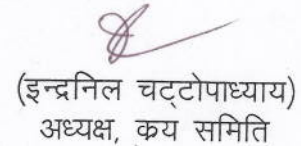 (इन्द्रनिल चट्टोपाध्याय)
अध्यक्ष, क्रय समिति